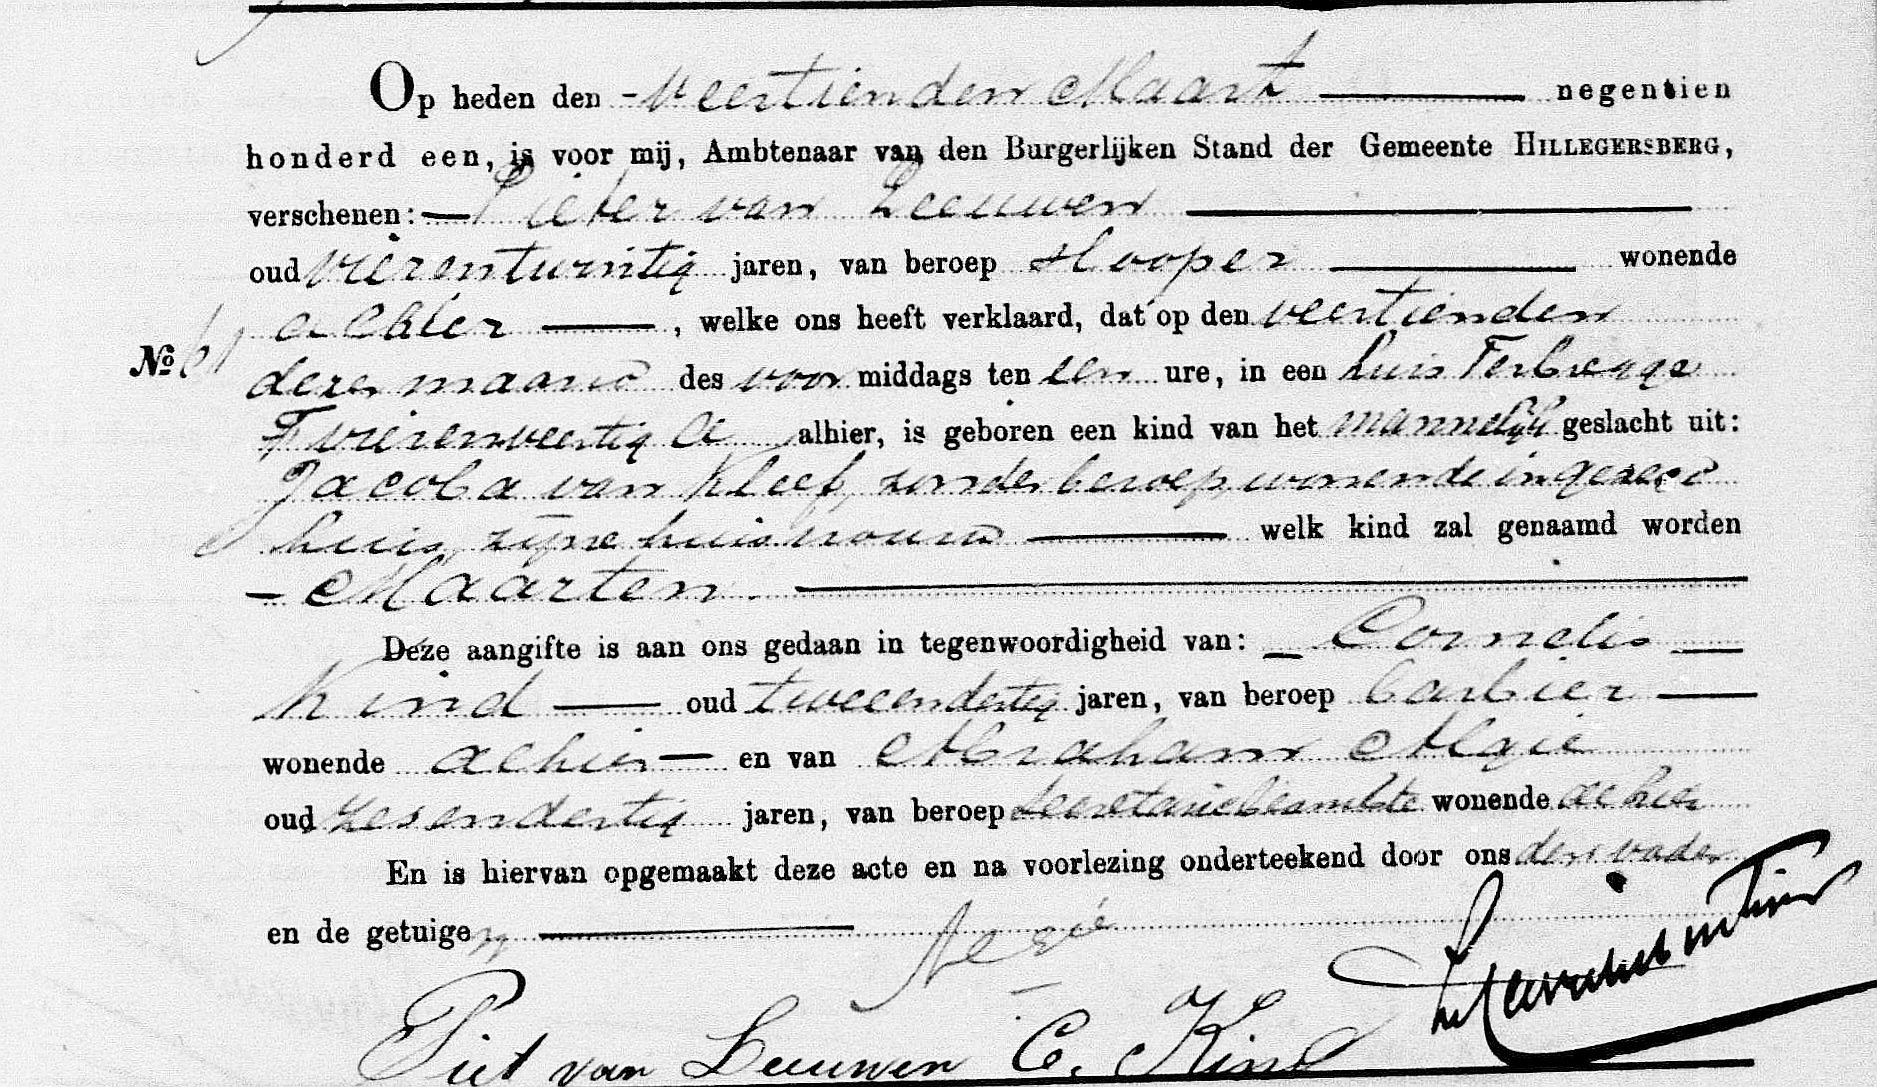 Op heden den - Veertienden Maart negentien
honderd een, is voor mij, Ambtenaar van den Burgerlijken Stand der Gemeente HILLEGERSBERG,
verschenen: Pieter van Leeuwen
oud vierentwintig jaren, van beroep slooper wonende
alhier, welke ons heeft verklaard, dat op den veertienden
dezer maand des voor middags ten een ure, in een huis Terbregge
No 61
vierenveertig a alhier, is geboren een kind van het mannelijk geslacht uit:
Jacoba van Kleef, zonder beroep, wonende in gezegd
huis, zijne huisvrouw welk kind zal genaamd worden
- Maarten.
Deze aangifte is aan ons gedaan in tegenwoordigheid van: Cornelis
Kind oud tweeendertig jaren, van beroep barbier
wonende alhier en van Abraham Algie
oud zesendertig jaren, van beroep Secretariebeambte wonende alhier
En is hiervan opgemaakt deze acte en na voorlezing onderteekend door ons den vader
en de getuigen
Algié
Piet van Leeuwen C. Kind